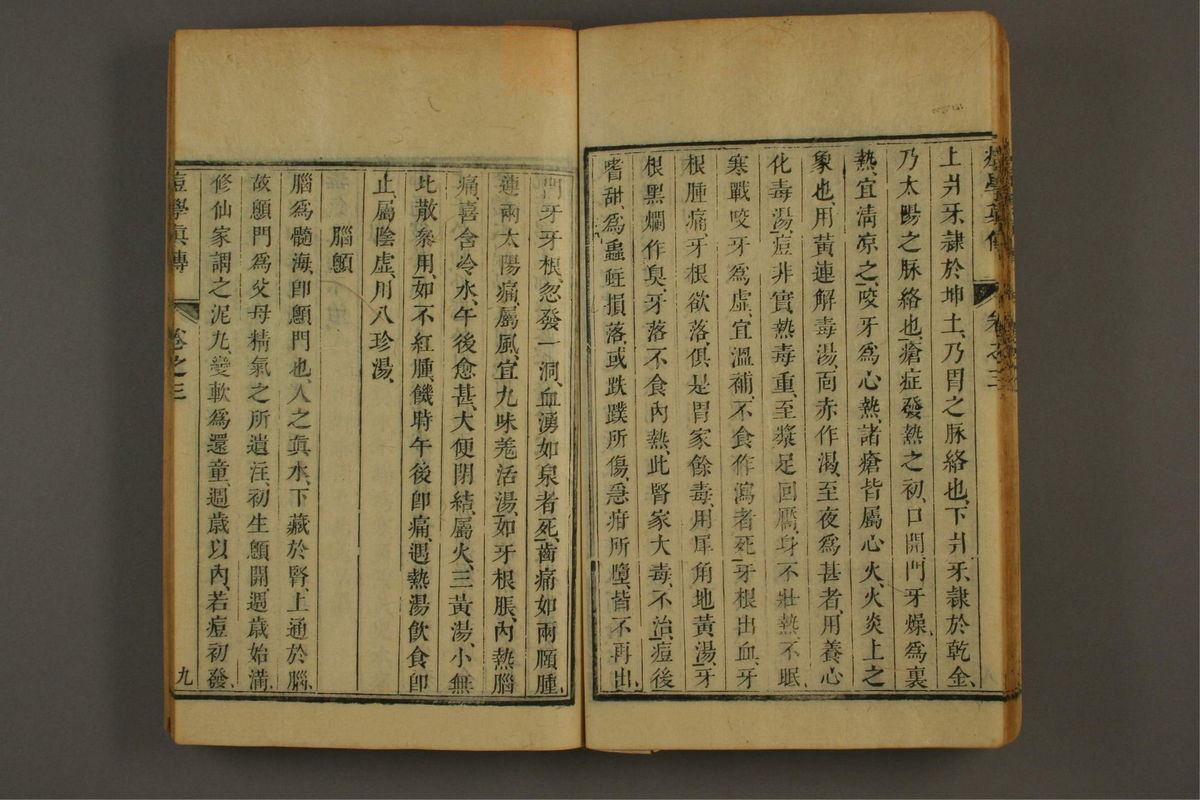 痘學真傳 卷之三
上爿牙、隸於坤土、乃胃之脉絡也、下爿牙、隸於乾金、
乃太陽之脉絡也、瘡症發熱之初、口開門牙燥、爲裏
熱、宜清凉之、咬牙爲心熱、諸瘡皆屬心火、火炎上之
象也、用黃連解毒湯、面赤作渴、至夜爲甚者、用養心
化毒湯、痘非實、熱毒重、至漿足回靨、身不壯熱、不眠、
寒戰咬牙爲虛、宜溫補、不食作瀉者死、牙根出血、牙
根腫痛、牙根欲落、俱是胃家餘毒、用犀角地黃湯、牙
根黑爛作臭、牙落不食內熱、此腎家大毒、不治、痘後
嗜甜、爲蟲蛀損落、或跌蹼所傷、急疳所墮、皆不再出、
門牙牙根、忽發一洞、血湧如泉者死、齒痛如兩頤腫、
連兩太陽痛、屬風、宜九味羗活湯、如牙根脹、內熱腦
痛、喜含冷水、午後愈甚、大便閉結、屬火、三黃湯、小無
比散叅用、如不紅腫、饑時午後卽痛、遇熱湯飲食卽
止、屬陰虛、用八珍湯、
腦顖
腦爲髓海、卽顖門也、人之眞水、下藏於腎、上通於腦、
故顖門爲父母精氣之所遺注、初生顖開、週歲始滿、
修仙家謂之泥丸、變軟爲還童、週歲以內、若痘初發、
痘學眞傳 卷之三 九